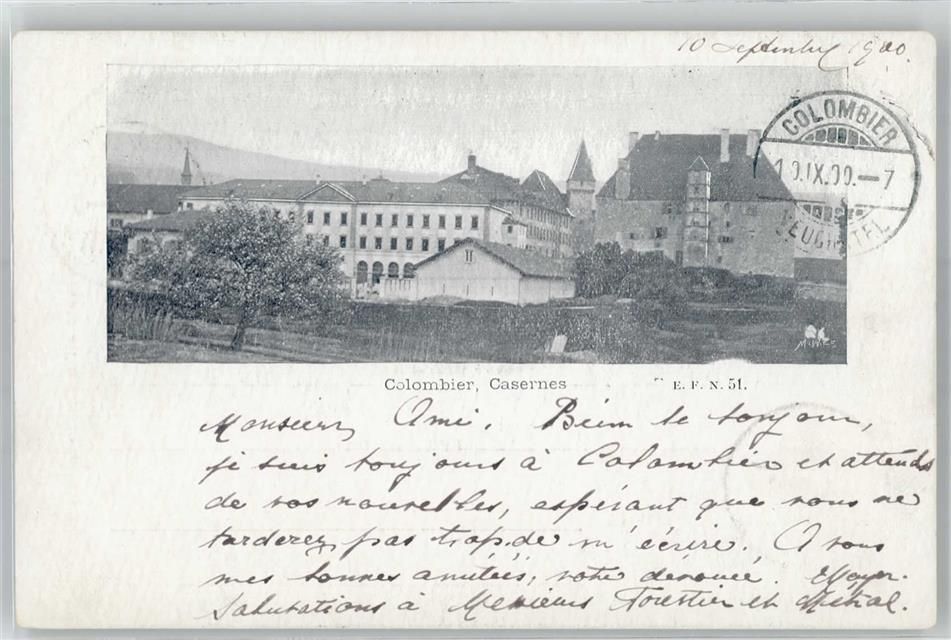 10 Septembre 1900.
COLOMBIER
10.IX.00.-7
Colombier, Casernes
E. F. N. 51.
Monsieur Ami. Bien le bonjour,
je suis toujours à Colombier et attends
de vos nouvelles, espérant que vous ne
tarderez pas trop de m'écrire. A vous
mes bonnes amitiés, votre dévouée. Meyer.
Salutations à Messieurs Forestier et